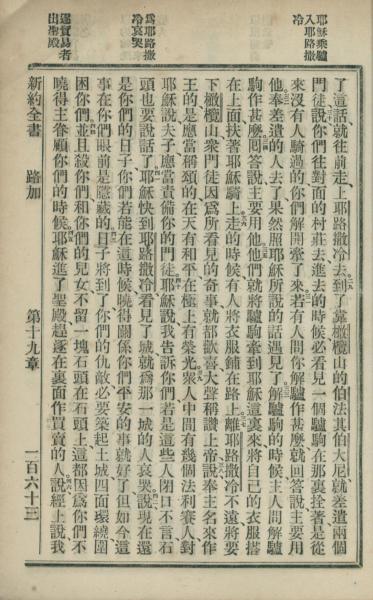 耶穌乘驢
入耶路撒
冷
爲耶路撒
冷哀哭
逐買易者
出聖殿
了這話就往前走上耶路撒冷去到了靠橄欖山的伯法其伯大尼就差遣兩個
門徒說你們往對面的村莊去進去的時候必看見一個驢駒在那裏拴著是從
來沒有人騎過的你們解開牽了來若有人問你解驢作甚麽就回答說主要用
他奉差遣的人去了果然照耶穌所說的話遇見了解驢駒的時候主人問解驢
駒作甚麽囘答說主要用他他們就將驢駒牽到耶穌這裏來將自己的衣服搭
在上面扶著耶穌騎上走的時候有人將衣服鋪在路上離耶路撒冷不遠將要
下橄欖山衆門徒因爲所看見的奇事就都歡喜大聲稱讚上帝說奉主名來作
王的是應當稱頌的在天有和平在極上有榮光衆人中間有幾個法利賽人對
耶穌說夫子應當責備你的門徒耶穌說我告訴你們若是這些人閉口不言石
頭也要說話了耶穌快到耶路撒冷看見了城就爲那一城的人哀哭說現在還
是你們的日子你們若能在這時候曉得關係你們平安的事就好了但如今這
事在你們眼前是隱藏的日子將到了你們的仇敵必要築起土城四面環繞圍
困你們並且殺你們和你們的兒女不留一塊石頭在石頭上這都因爲你們不
曉得主眷顧你們的時候耶穌進了聖殿趕逐在裏面作買賣的人說經上說我
新約全書 路加 第十九章 一百六十三